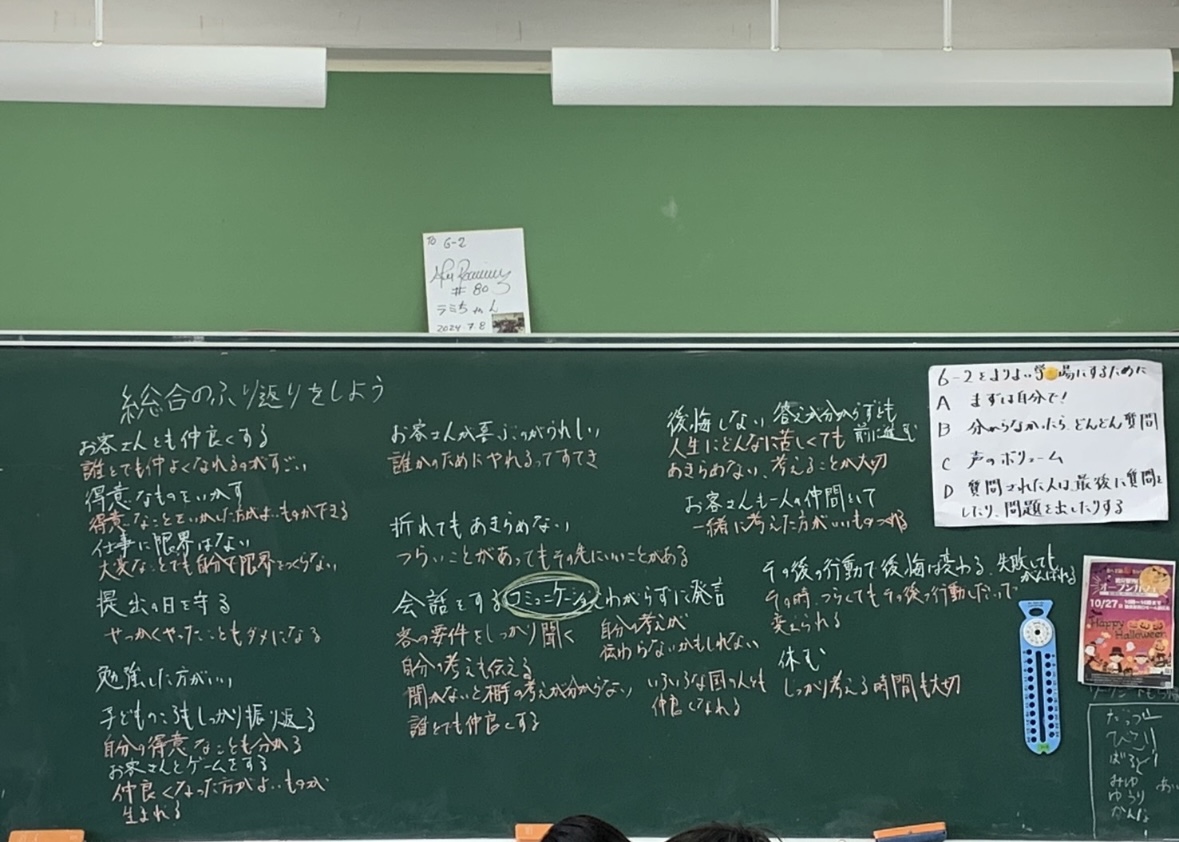 TO 6-2
#80
ラミちゃん
2024.7.8
総合のふり返りをしよう
お客さんとも仲良くする
誰とでも仲よくなれるのがすごい
得意なものをいかす
得意なことをいかした方がよいものができる
仕事に限界はない
大変なことでも自分で限界をつくらない
提出の日を守る
せっかくやったこともダメになる
勉強した方がいい
子どものころもしっかり振り返る
自分の得意なことも分かる
お客さんとゲームをする
仲良くなった方がよいものが
生まれる
お客さんが喜ぶのがうれしい
誰かのためにやれるってすてき
折れてもあきらめない
つらいことがあってもその先にいいことがある
会話をする コミュニケーション
わからずに発言
客の要件をしっかり聞く
自分の考えも伝える
聞かないと相手の考えが分からない
誰とでも仲良くする
自分の考えが
伝わらないかもしれない
いろいろな国の人とも
仲良くなれる
後悔しない 答えが分からずとも
前に進む
人生にどんなに苦しくても
あきらめない、考えることが大切
お客さんも一人の仲間として
一緒に考えた方がいいものつくれる
その後の行動で後悔は変わる 失敗しても
がんばれる
その時、つらくてもその後の行動しだいで
変えられる
休む
しっかり考える時間も大切
6-2をよりよい学び場にするために
A まずは自分で!
B 分からなかったら、どんどん質問
C 声のボリューム
D 質問された人は、最後に質問を
したり、問題を出したりする
オープンカフェ
10/27
Happy
Halloween
みゆ
ゆらり
かんな